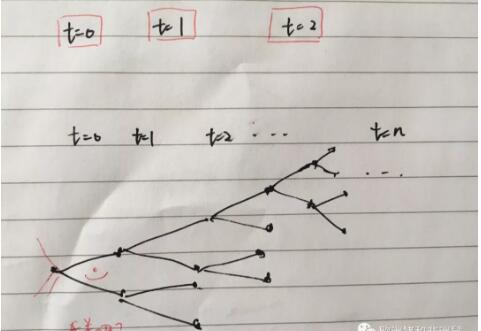 t=0 t=1 t=2
t=0 t=1 t=2 ... t=n
...